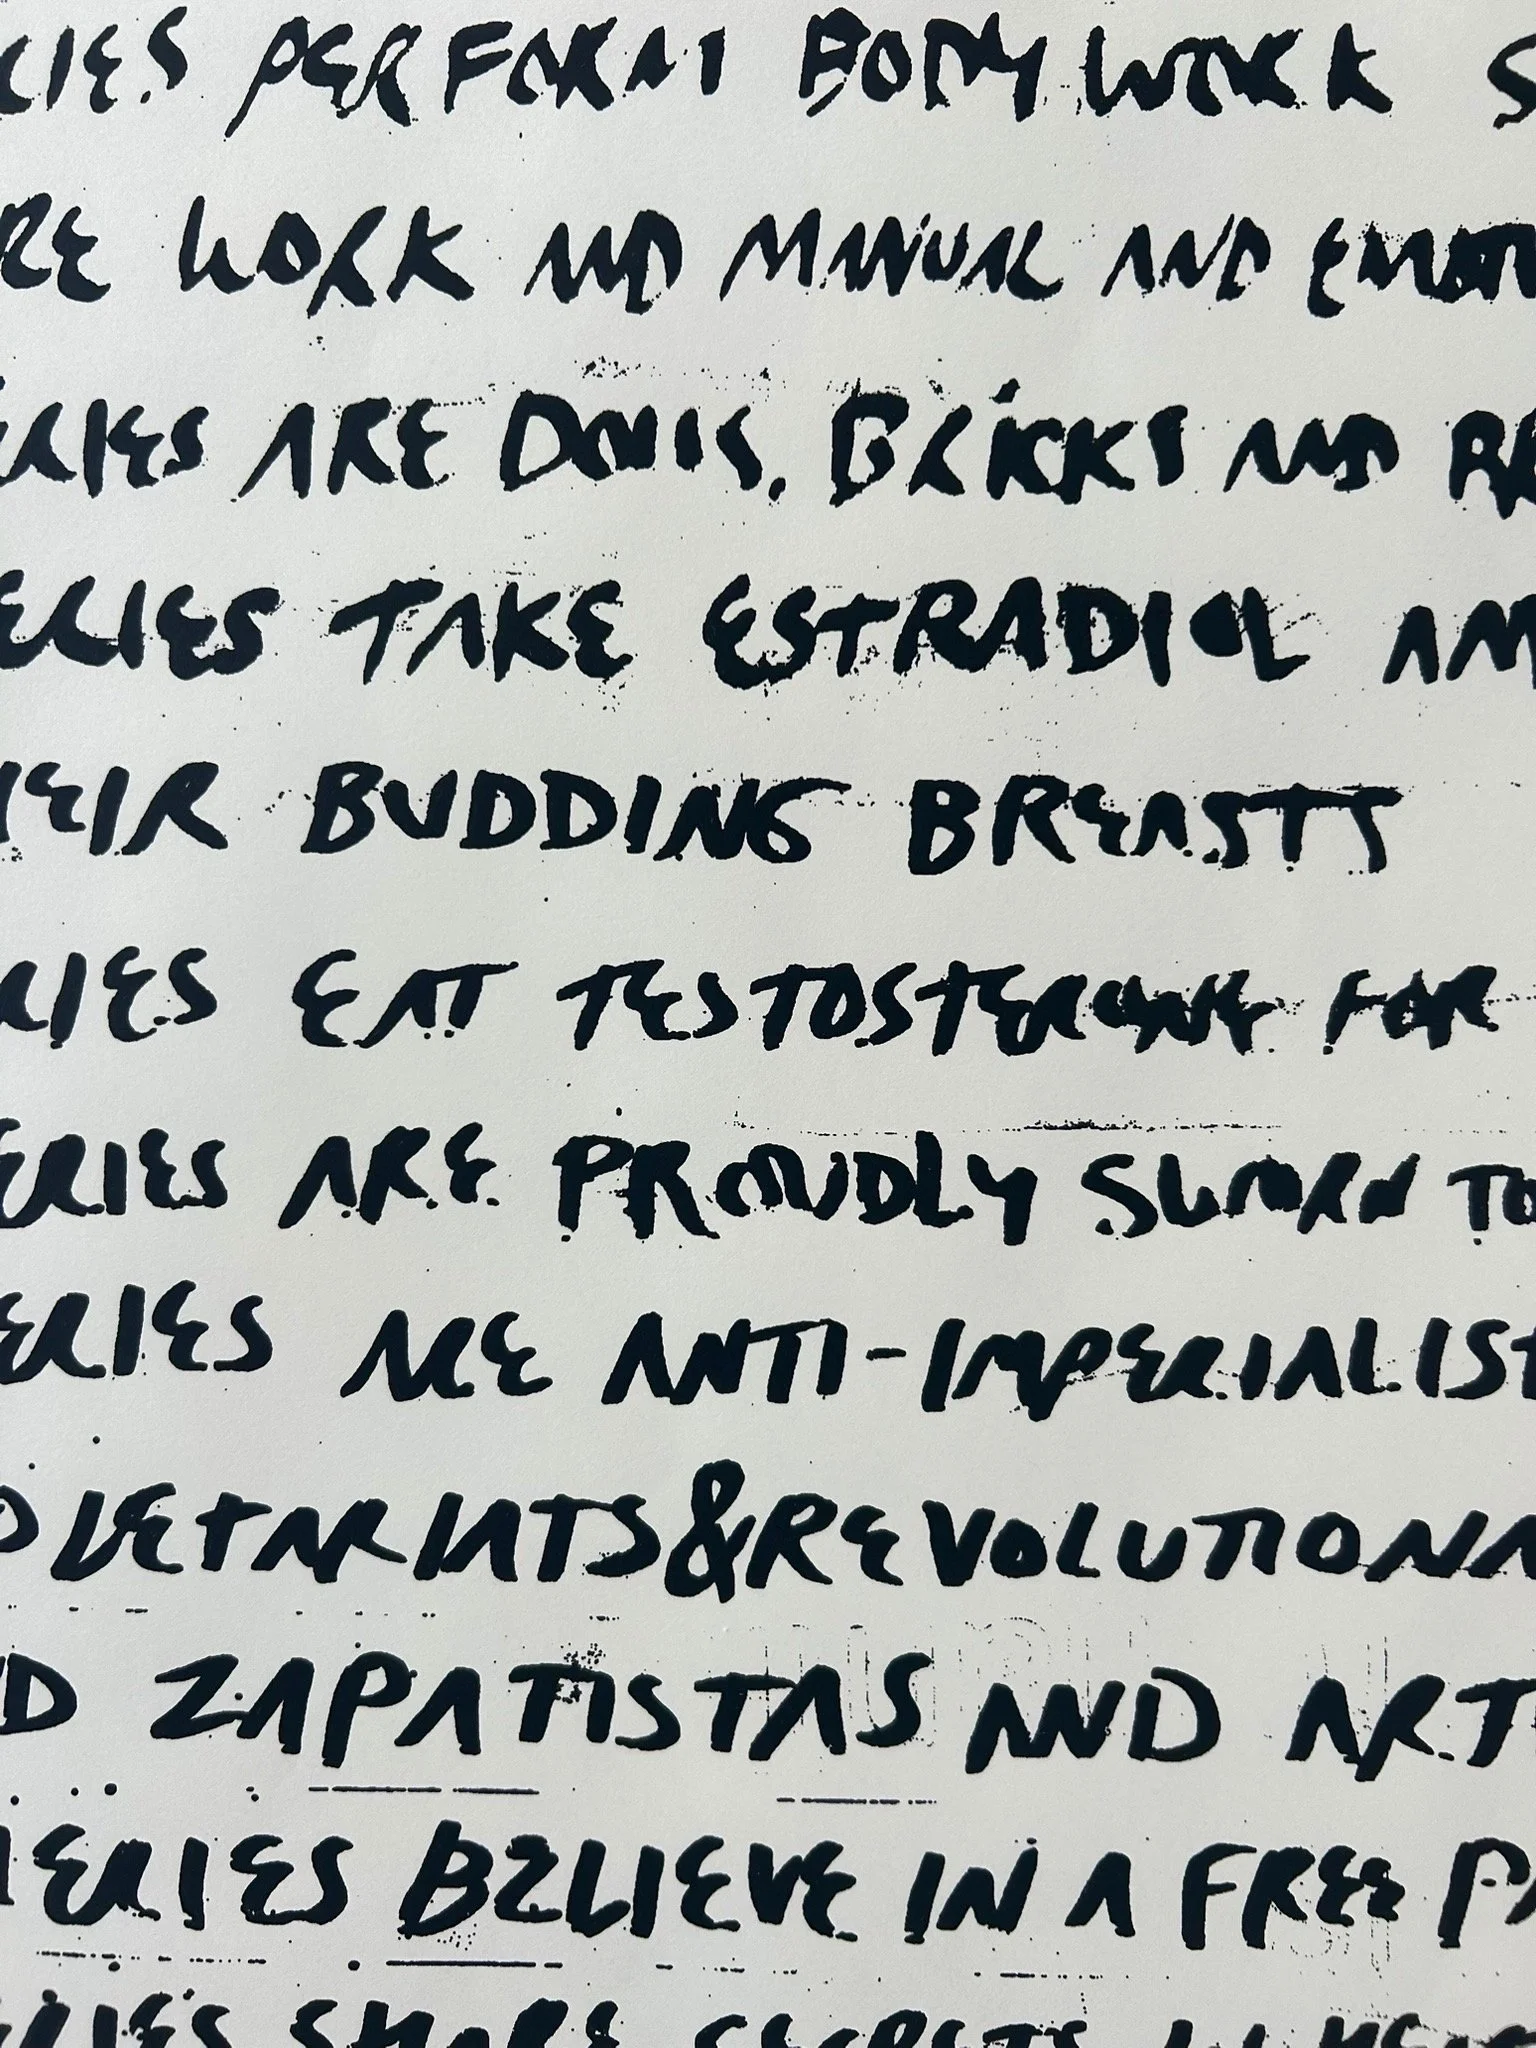 ERIES PERFORM BODY WORK S
RE WORK AND MANUAL AND EMOTI
ERIES ARE DOMS, BRICKS AND BR
ERIES TAKE ESTRADIOL AN
HEIR BUDDING BREASTS
RIES EAT TESTOSTERONE FOR
ERIES ARE PROUDLY SWORN TO
ERIES ARE ANTI-IMPERIALIST
OLETARIATS & REVOLUTIONA
D ZAPATISTAS AND ART
ERIES BELIEVE IN A FREE PA
ERIES SHARE SECRETS